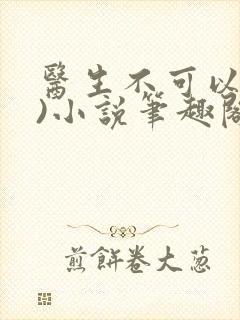 醫生不可以
)小說筆趣閣
煎餅卷大蔥